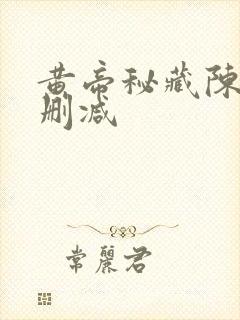 黄帝秘藏陳
删减
常麗君